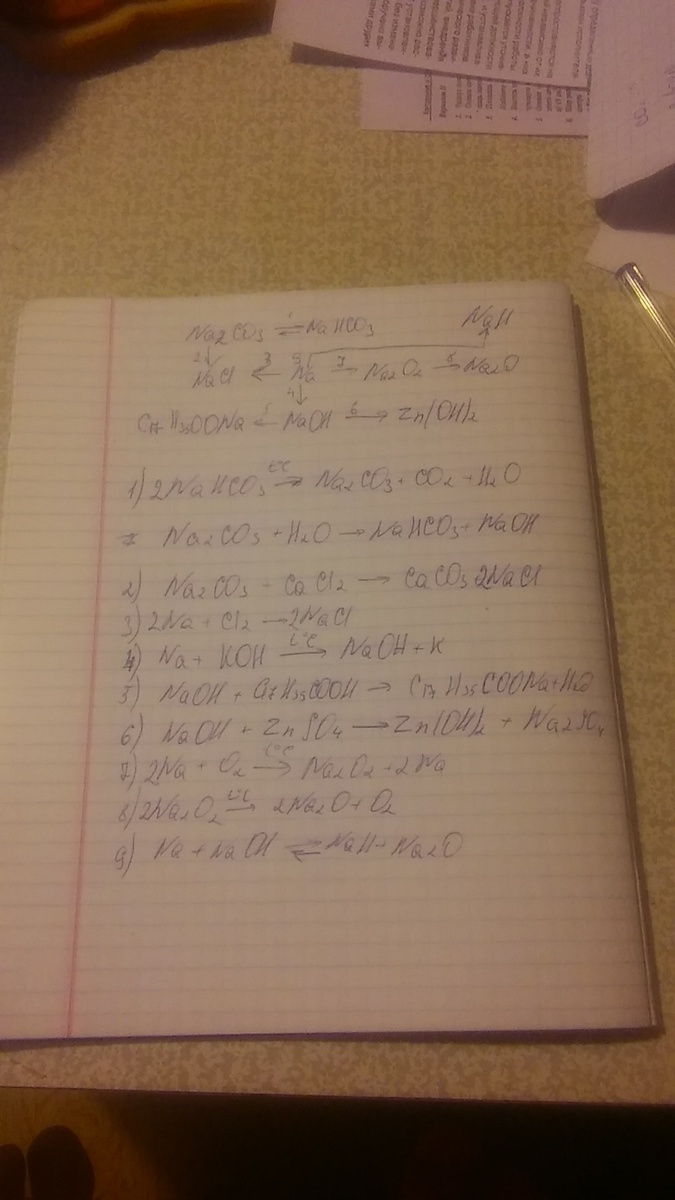 1
Na2CO3 ⇌ NaHCO3 NaH
2↓ 3 9 7 8
NaCl ← Na → Na2O2 → Na2O
4↓
C17H35OONa ← NaOH 6→ Zn(OH)2
1) 2NaHCO3 t°C→ Na2CO3 + CO2 + H2O
Na2CO3 + H2O → NaHCO3 + NaOH
2) Na2CO3 + CaCl2 → CaCO3 2NaCl
3) 2Na + Cl2 → 2NaCl
4) Na + KOH t°C→ NaOH + K
5) NaOH + C17H35COOH → C17H35COONa + H2O
6) NaOH + ZnSO4 → Zn(OH)2 + Na2SO4
7) 2Na + O2 t°C→ Na2O2 + 2Na
8) 2Na2O2 t°C→ 2Na2O + O2
9) Na + NaOH ⇌ NaH + Na2O